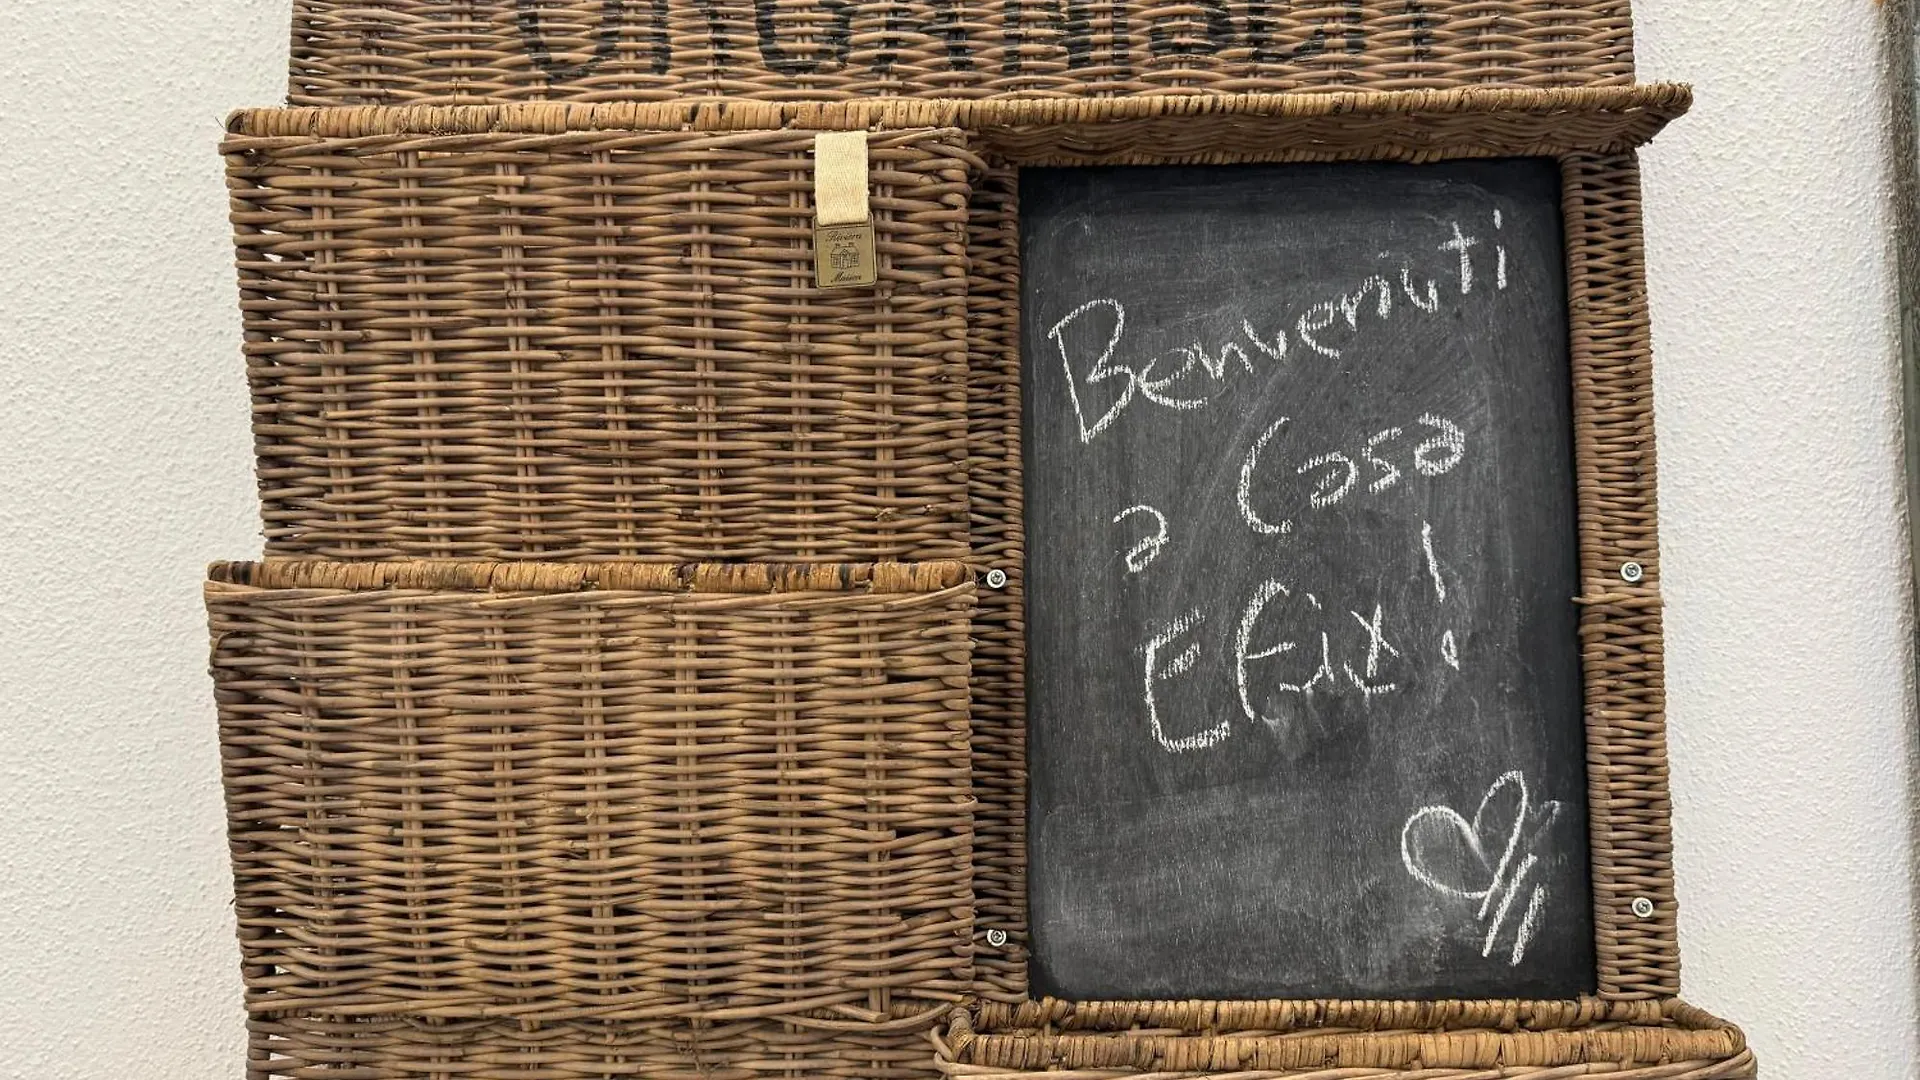 ORGANISER
Rivièra
Maison
Benvenuti
a Casa
Efix!